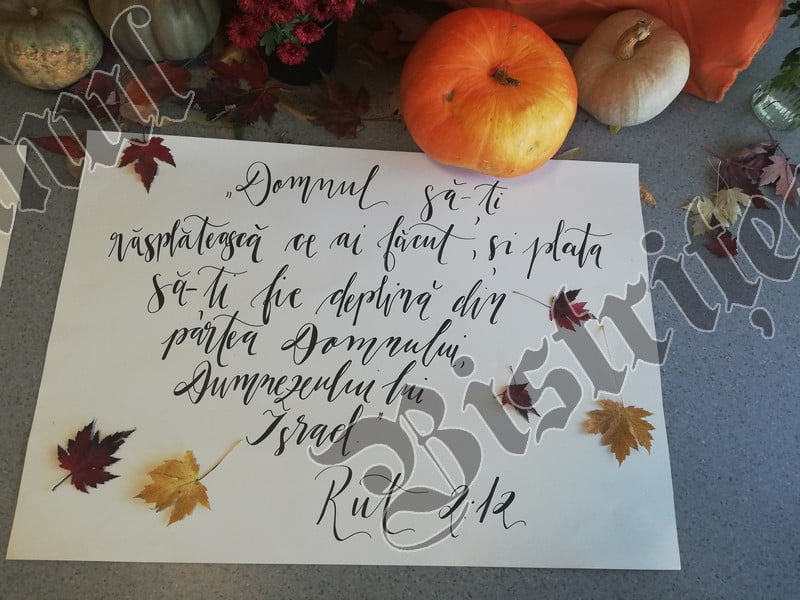 „Domnul să-ți
răsplătească ce ai făcut, și plata
să-ți fie deplină din
partea Domnului,
Dumnezeului lui
Israel."
Rut 2:12